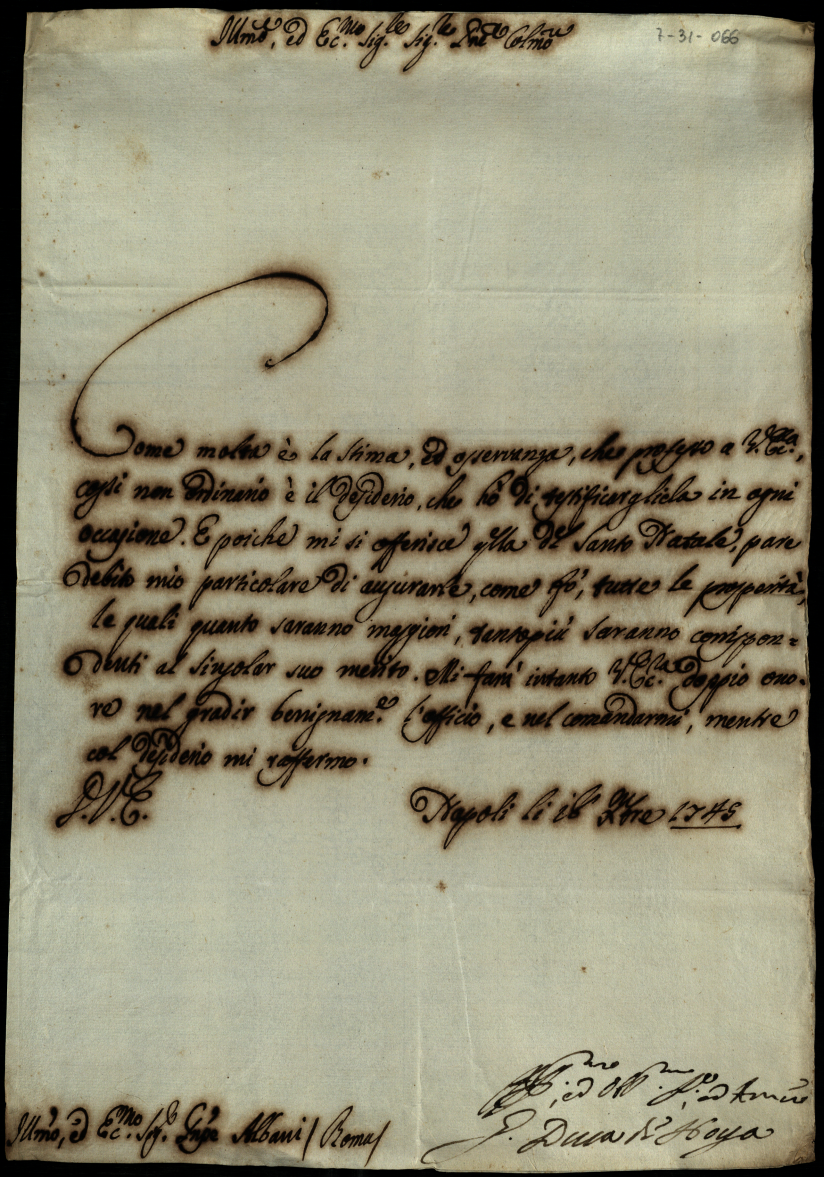 Illmo, ed Ecc.mo Sig.re Sig.re Pne Colmo
7-31-066
Come molta è la stima, ed osservanza, che professo a V. Ecc.za,
così non ordinario è il desiderio, che hò di testificargliela in ogni
occasione. E poiche mi si offerisce q̃lla del Santo Natale, pare
debito mio particolare di augurarle, come fò, tutte le prosperità,
le quali quanto saranno maggiori, tantopiù saranno corrispon=
denti al singolar suo merito. Mi farà intanto V. Ecc.za doppio ono-
re nel gradir benignam.te l'officio, e nel comandarmi, mentre
col desiderio mi raffermo.
D. V. E.
Napoli li 16 Xbre 1745
ed ed
Duca
Illmo, ed Ecc.mo Sig.r Pnpe Albani / Roma /